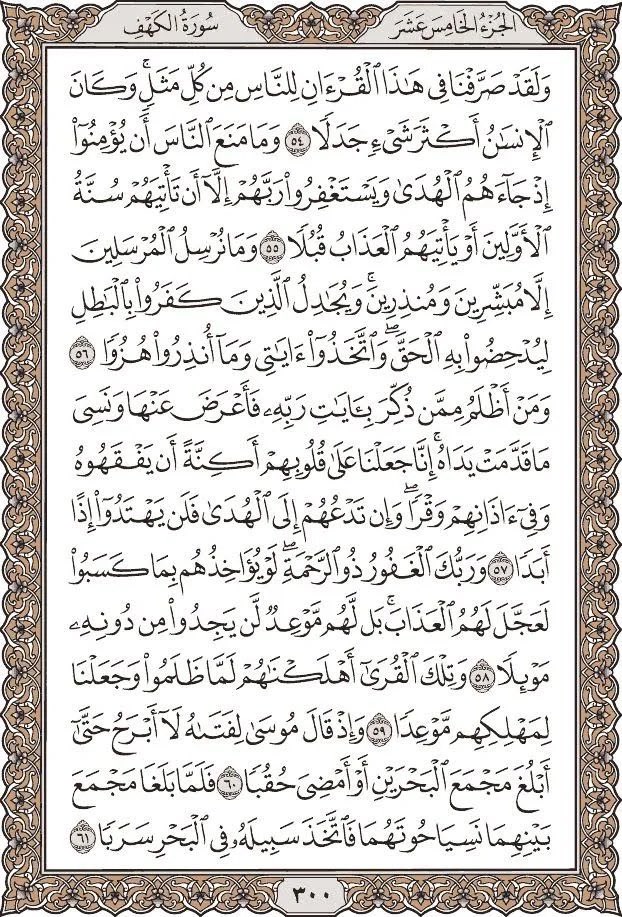 الجزء الخامس عشر
سورة الكهف
وَلَقَدْ صَرَّفْنَا فِي هَٰذَا ٱلْقُرْءَانِ لِلنَّاسِ مِن كُلِّ مَثَلٖۚ وَكَانَ
ٱلْإِنسَٰنُ أَكْثَرَ شَيْءٖ جَدَلٗا ٥٤ وَمَا مَنَعَ ٱلنَّاسَ أَن يُؤْمِنُوٓاْ
إِذْ جَآءَهُمُ ٱلْهُدَىٰ وَيَسْتَغْفِرُواْ رَبَّهُمْ إِلَّآ أَن تَأْتِيَهُمْ سُنَّةُ
ٱلْأَوَّلِينَ أَوْ يَأْتِيَهُمُ ٱلْعَذَابُ قُبُلٗا ٥٥ وَمَا نُرْسِلُ ٱلْمُرْسَلِينَ
إِلَّا مُبَشِّرِينَ وَمُنذِرِينَۚ وَيُجَٰدِلُ ٱلَّذِينَ كَفَرُواْ بِٱلْبَٰطِلِ
لِيُدْحِضُواْ بِهِ ٱلْحَقَّۖ وَٱتَّخَذُوٓاْ ءَايَٰتِي وَمَآ أُنذِرُواْ هُزُوٗا ٥٦
وَمَنْ أَظْلَمُ مِمَّن ذُكِّرَ بِـَٔايَٰتِ رَبِّهِۦ فَأَعْرَضَ عَنْهَا وَنَسِيَ
مَا قَدَّمَتْ يَدَاهُۚ إِنَّا جَعَلْنَا عَلَىٰ قُلُوبِهِمْ أَكِنَّةً أَن يَفْقَهُوهُ
وَفِيٓ ءَاذَانِهِمْ وَقْرٗاۖ وَإِن تَدْعُهُمْ إِلَى ٱلْهُدَىٰ فَلَن يَهْتَدُوٓاْ إِذًا
أَبَدٗا ٥٧ وَرَبُّكَ ٱلْغَفُورُ ذُو ٱلرَّحْمَةِۖ لَوْ يُؤَاخِذُهُم بِمَا كَسَبُواْ
لَعَجَّلَ لَهُمُ ٱلْعَذَابَۚ بَل لَّهُم مَّوْعِدٞ لَّن يَجِدُواْ مِن دُونِهِۦ
مَوْئِلٗا ٥٨ وَتِلْكَ ٱلْقُرَىٰٓ أَهْلَكْنَٰهُمْ لَمَّا ظَلَمُواْ وَجَعَلْنَا
لِمَهْلِكِهِم مَّوْعِدٗا ٥٩ وَإِذْ قَالَ مُوسَىٰ لِفَتَىٰهُ لَآ أَبْرَحُ حَتَّىٰٓ
أَبْلُغَ مَجْمَعَ ٱلْبَحْرَيْنِ أَوْ أَمْضِيَ حُقُبٗا ٦٠ فَلَمَّا بَلَغَا مَجْمَعَ
بَيْنِهِمَا نَسِيَا حُوتَهُمَا فَٱتَّخَذَ سَبِيلَهُۥ فِي ٱلْبَحْرِ سَرَبٗا ٦١
٣٠٠